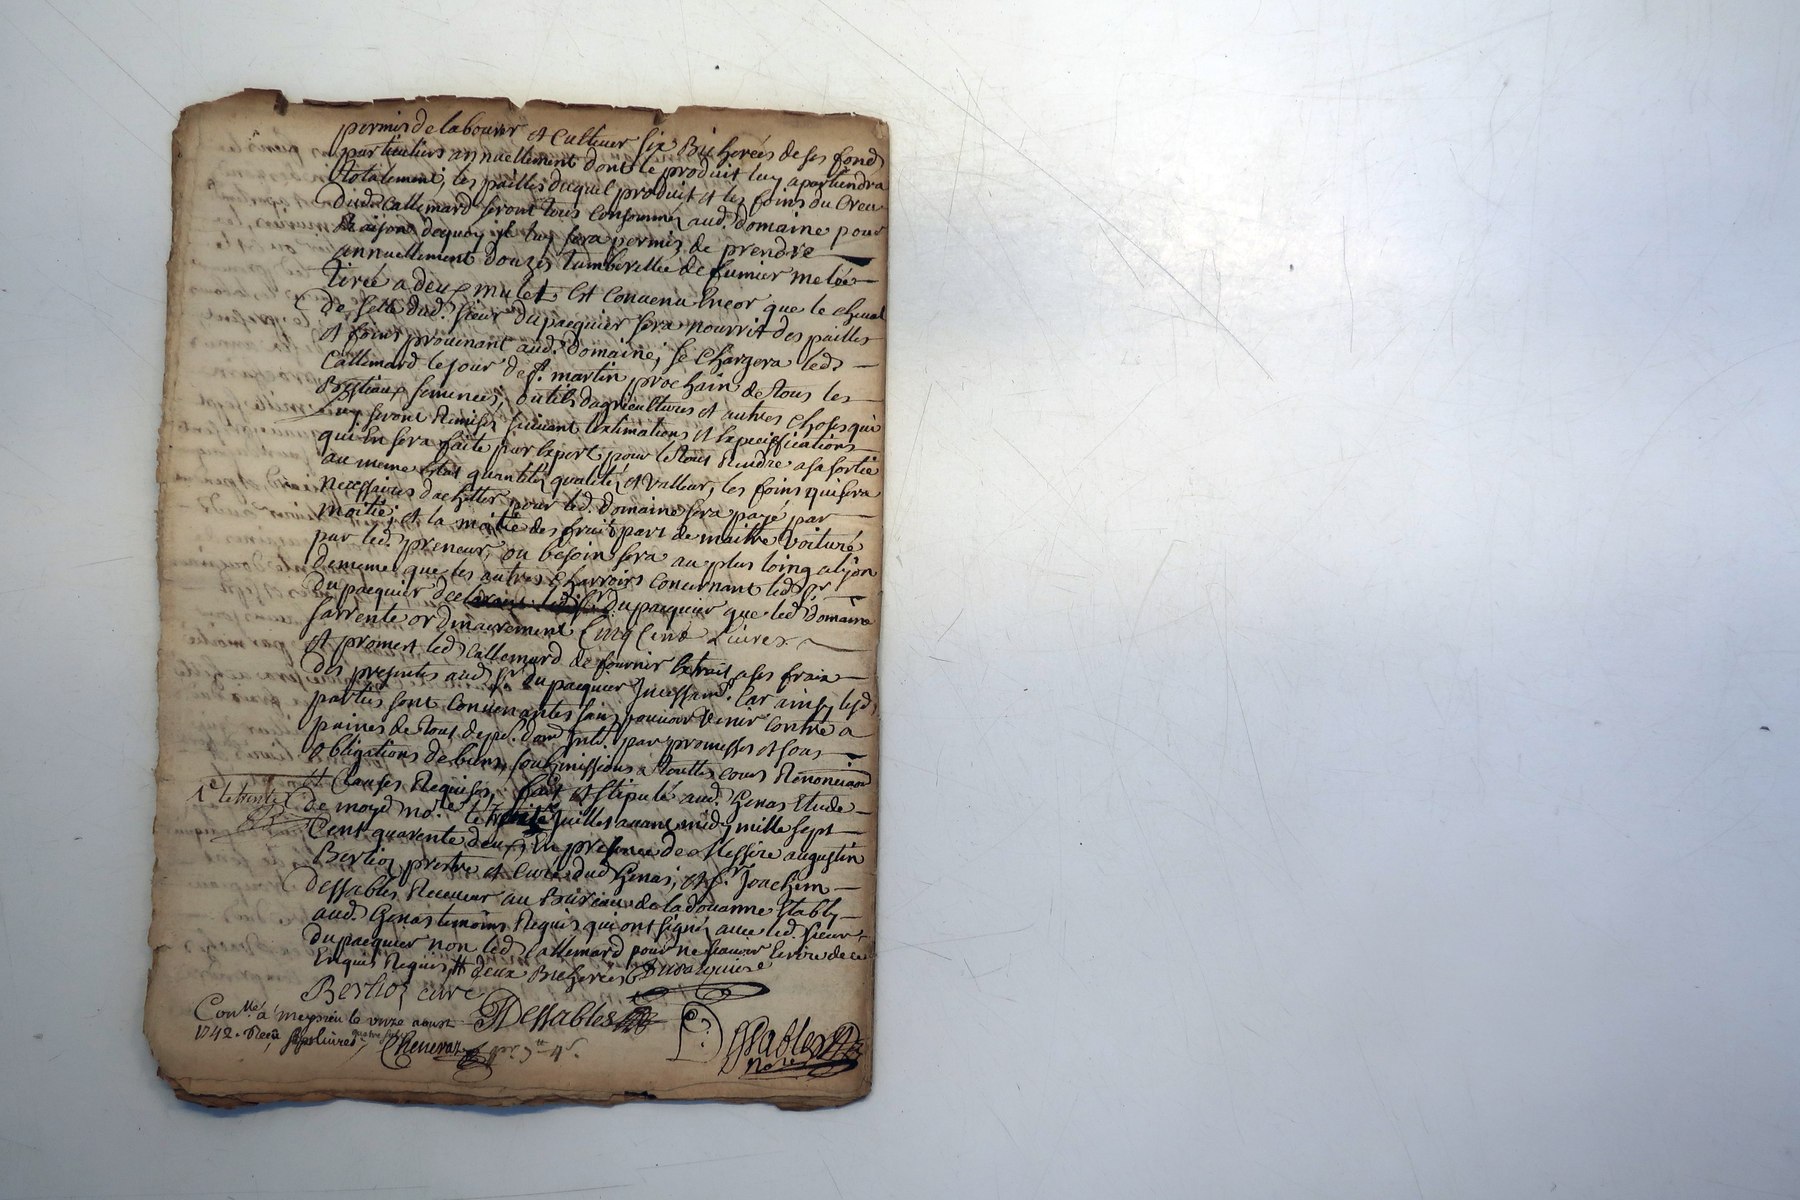 permis de labourer et Cultiver six Bicherées de ses fond
particuliers annuellement dont le produit luy apartiendra
totalement, les pailles duquel produit et les foins du Creu
dud Callemard seront tous consommés aud. domaine pour
Raison dequoy il luy sera permis de prendre
annuellement douzes tumberellée de fumier melée
tirée a deux mulet. Est Convenu Encor que le cheval
de selle dud. sieur Dupacquier sera nourrit des pailles
et foins provenant aud. domaine, se Chargera led
Callemard le jour de st. martin prochain de tous les
Bestiaux semences, outils dagricultures et autres choses qui
y seront Remises suivant lextimations et Expeciffications
qui En sera faite par Expert pour le tout Rendre a sa sortie
au meme Etat quantité, qualité, et valleur, les foins qui sera
necessaires dachetter pour led. domaine sera payé par
moitié, et la moitié des fruit part de maitre voituré
par led. preneur, ou besoin sera au plus loing a lyon
dememe que les autres Charroirs concernant led sr
Dupacquier declarant led sr Dupacquier que led domaine
sarrente ordinairement Cinq Cent Livres
et promest led Callemard de fournir Extrait a ses frais
des presentes aud sr. Dupacquier Incessamt. Car ainsy lesd
parties sont convenantes sans pouvoir venir contre a
peines de tout depd. dom Intd. par promesses et sous
obligations de biens, soubmissions a touttes cours Renonciaon
et Clauses Requises, fait et stipulé aud. Genas Etude
de moyd nore. le Juillet avant midy mille sept
1c le trente
Cent quarente deux, En presence de Messire augustin
Berlioz prestre et Curé dud Genas, et sr. Joachim
Dessables Receveur au Bureau de la douanne Etably
aud. Genas temoins Requis qui ont signé avec led. sieur
Dupacquier non led Callemard pour ne scavoir Ecrire de ce
Enquis Requis # deux Bicherées Dupacquier
Berlioz curé
Conllé a meyzieu le onze aoust Dessables
1742. Recu sept livres quatre sols
Chenevaz pr. 7tt 4s. Dssables
Nore